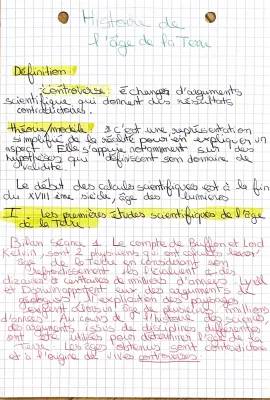 Histoire de
l'âge de la Terre
Définition :
controverse : échanges d'arguments
scientifique qui donnent des résultats
contradictoires.
théorie/modèle : c'est une représentation
simplifié de la réalité pour en expliquer un
aspect. Elle s'appuie notamment sur des
hypothèses qui définissent son domaine de
validité.
Le début des calculs scientifiques est à la fin
du XVIII ème siècle, âge des lumières
I : Les premières études scientifiques de l'âge
de la Terre
Bilan séance 1 : Le compte de Buffon et Lord
Kelvin sont 2 physiciens qui ont calculé
âge de la Terre en considérant son
refroidissement ils l'évaluent à des
dizaines à centaines de milliers d'années. Lyell
et Darwin apportent sur des arguments de
géologues. L'explication des paysages
plusieurs millions
d'années. Au cours de l'histoire des sciences
des arguments issus de disciplines différentes
ont été utilisés pour déterminer l'âge de la
Terre. Les âges obtenus sont contradictoires
et à l'origine de vives controverses